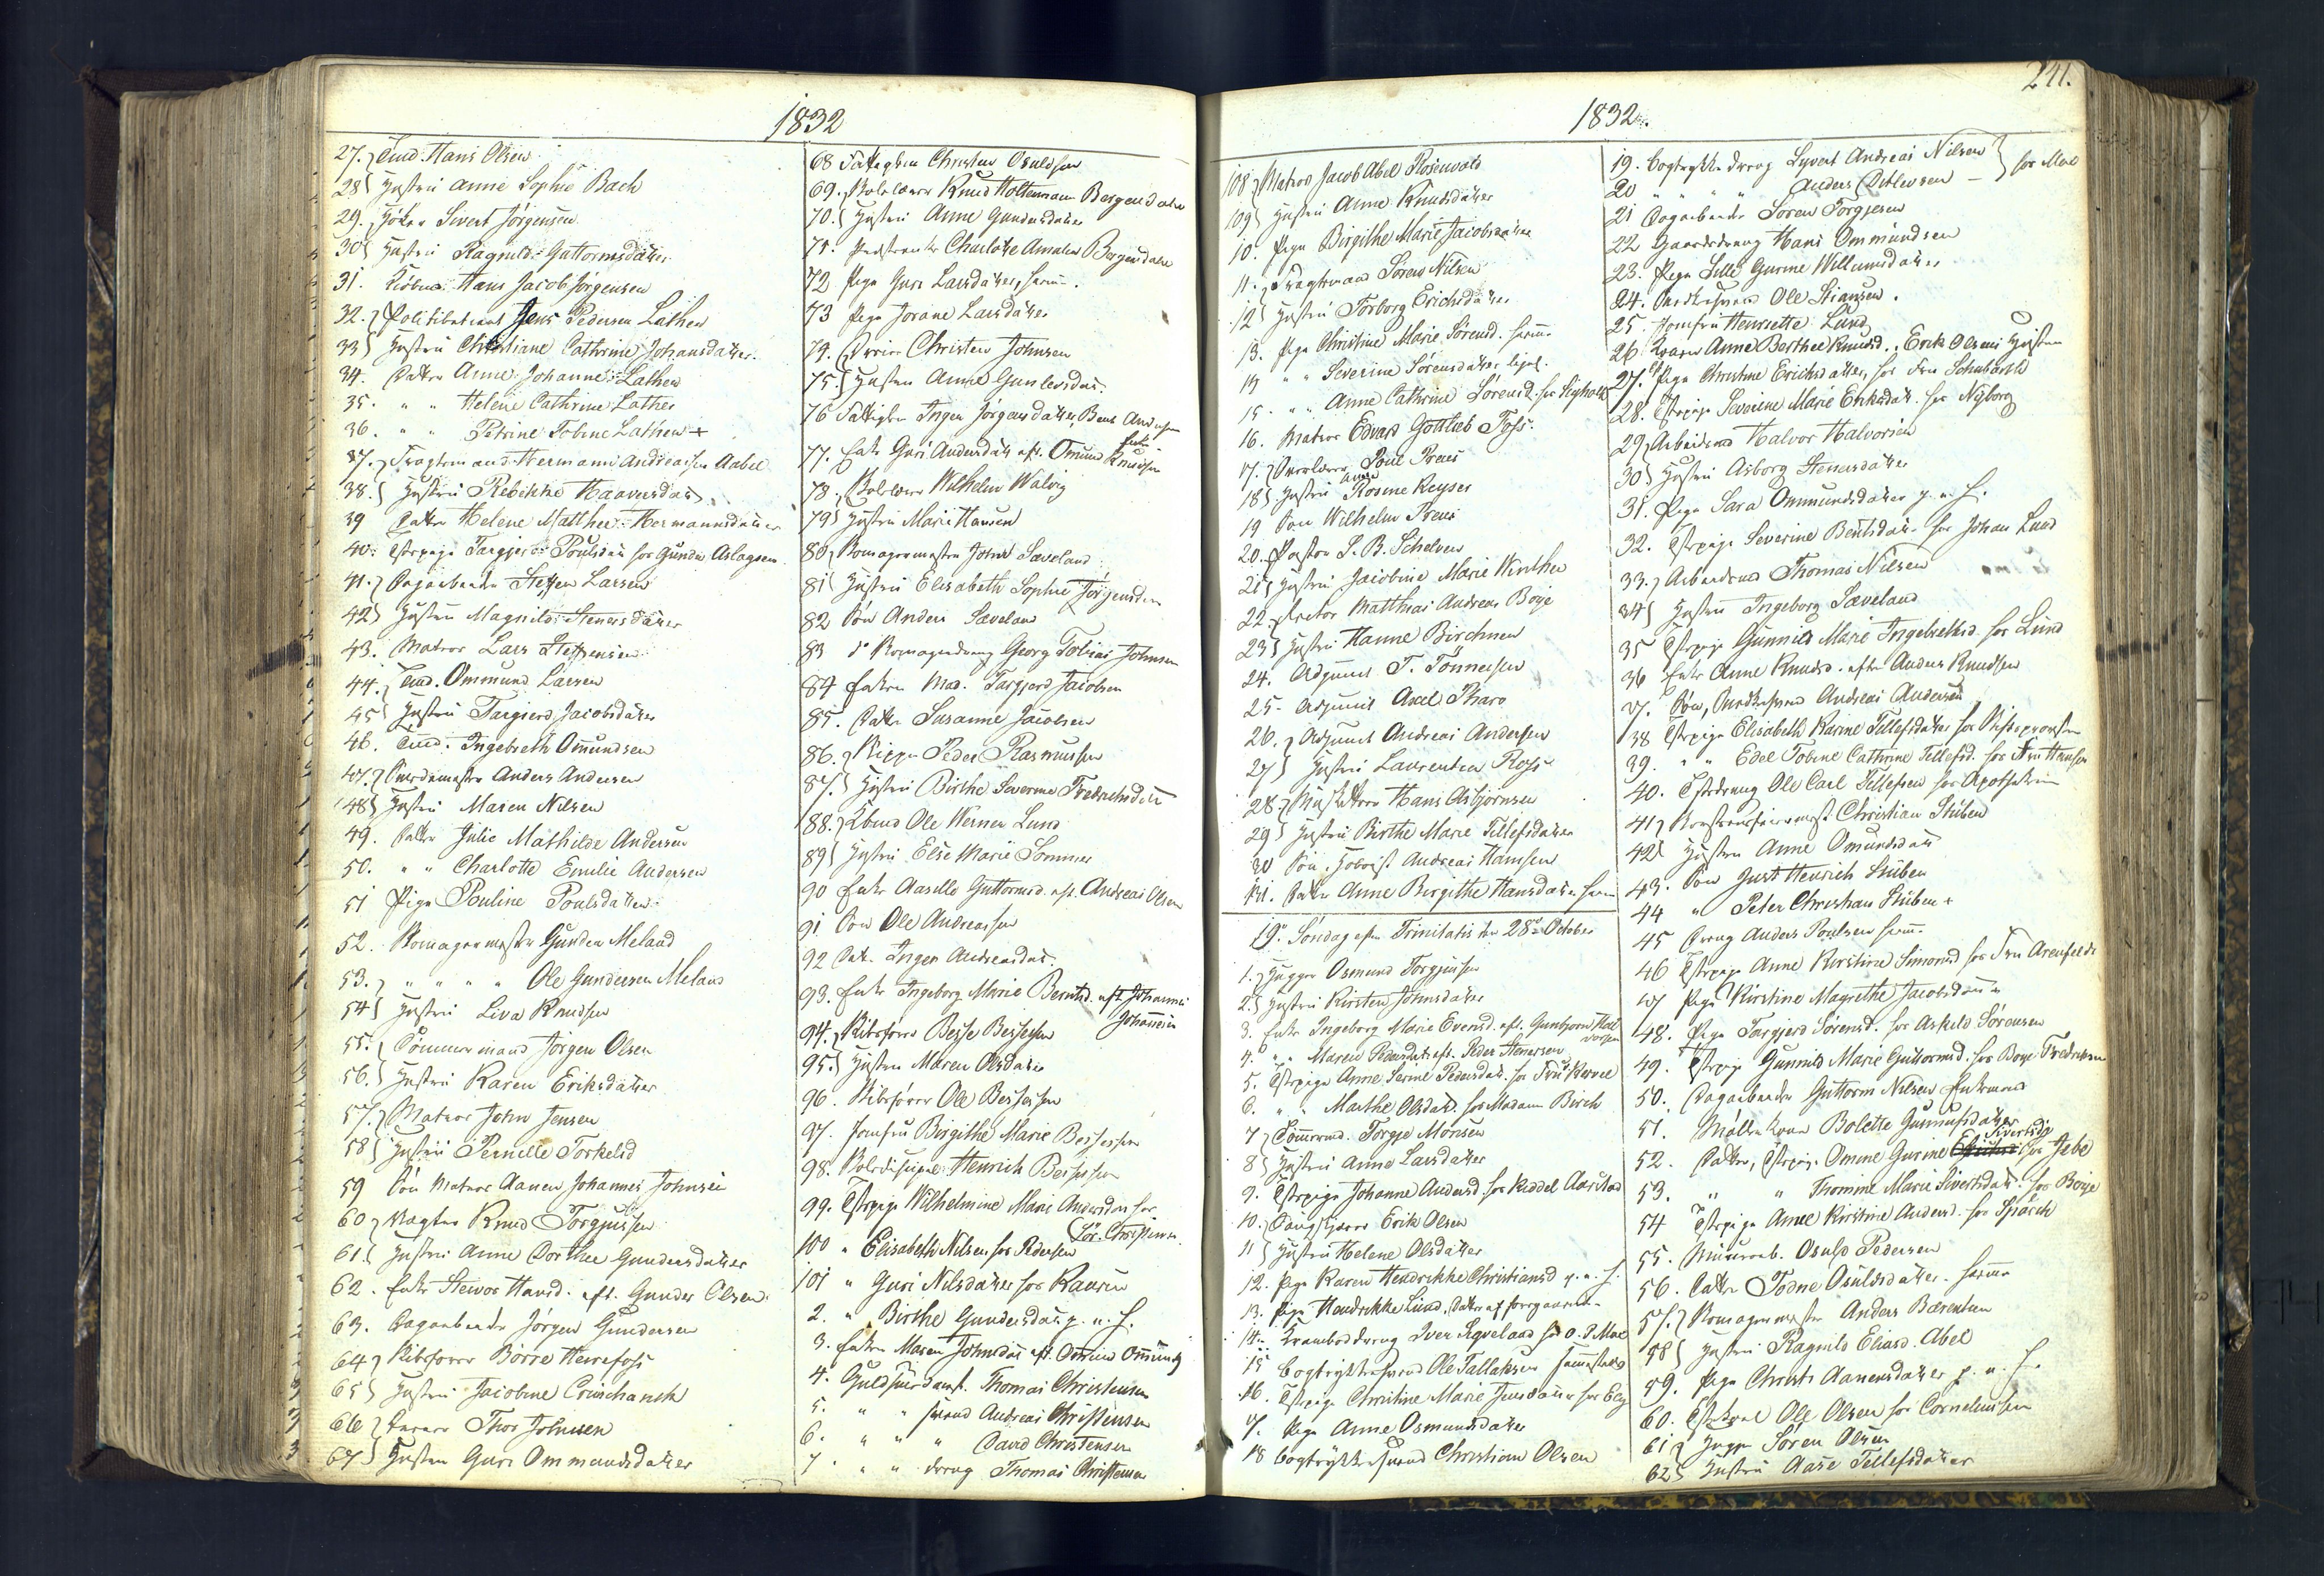 1832
27. Tmd. Hans Olsen
28 Hustru Anne Sophie Bach
29. Sivert Jørgensen
30 Hustru Ragnild Guttormsdatter
31. Hans Jacob Jørgensen
32. Politibetient Jens Pedersen Lathen
33 Hustru Christiane Cathrine Johansdatter
34. Datter Anne Johanne Lathen
35. " " Helene Cathrine Lathen
36. " " Petrine Tobine Lathen +
37. Fragtemand Hermann Andreasen Aabel
38. Hustru Rebekke Haaversdatt
39 Datter Helene Matthea Hermannsdatter
40. Tstpige Targjer Poulsdatt hos Gunder Aslagsen
41. Dagarbeider Steffen Larsen
42 Hustru Magnild Stenersdatter
43. Matros Lars Steffensen
44. Tmd. Ommund Larsen
45 Hustru Targjerd Jacobsdatter
46. Tmd. Ingebreth Omundsen
47. Anders Andersen
48 Hustru Maren Nilsen
49. Datter Julie Mathilde Andersen
50. " " Charlotte Emilie Andersen
51 Pige Pouline Poulsdatter
52. Skomagermester Gunder Meland
53. " " " " Ole Gundersen Meland
54 Hustru Liva Knudsen
55. Tømmermand Jørgen Olsen
56. Hustru Karen Eriksdatter
57. Matros John Jensen
58 Hustru Pernille Torkelsd
59 Søn Matros Aanen Johannes Johnsen
60 Vægter Knud Torgjussen
61 Hustru Anne Dorthea Gundersdatter
62. Enke Hansd. eft. Gunder Olsen
63. Dagarbeider Jørgen Gundersen
64 Skibsfører Børre Herrefoss
65 Hustru Jacobine Cruichansk
66 Thor Johnsen
67 Hustru Guri Ommundsdatter
68 Fattiglem Christen Osuldsen
69. Skolelærer Knud Holtermann Bergendahl
70. Hustru Anne Gundersdatter
71. Charlotte Amalia Bergendahl
72 Pige Guri Larsdatter, hjemme.
73 Pige Jorane Larsdatter
74. Christen Johnsen
75. Hustru Anne Gunlevsdatt.
76 Fattiglem Inger Jørgensdatter, Bent Andersens Enke
77. Enke Guri Andersdatt eft. Omund Knudsen
78. Skolelærer Wilhelm Walvig
79 Hustru Marie Hansen
80 Skomagermester John Sæveland
81 Hustru Elisabeth Sophie Jørgensdatter
82 Søn Anders Sæveland
83 do Skomagerdreng Georg Tobias Johnsen
84 Enken Mad. Targjerd Jacobsen
85. Datter Susanne Jacobsen
86. Skipper Peder Rasmussen
87. Hustru Birthe Severine Fredrichsdatt
88. Kbmd Ole Werner Lund
89 Hustru Else Marie Sommer
90 Enke Aasille Guttormsd. eft. Andreas Olsen
91 Søn Ole Andreassen
92 Datt. Inger Andreasdatt.
93. Enke Ingeborg Marie Berntsd. eft. Johannes Johannesen
94. Skibsfører Besse Bessesen
95. Hustru Maren Olsdatter
96. Skibsfører Ole Bessesen
97. Jomfru Birgithe Marie Bessesen
98. Skoledisipel Henrich Bessesen
99. Tstpige Wilhelmine Marie Andersdatt hos Sør. Christensen
100 " Elisabeth Nilsen hos Pedersen
101 " Guri Nilsdatter hos Kaurin
2. " Birthe Gundersdatt p. u. h.
3. Enken Maren Johnsdatt eft.
4. Guldsmed Thomas Christensen
5. " " svend Andreas Christensen
6. " " " David Christensen
7 " " dreng Thomas Christensen
241.
1832.
108 Matros Jacob Abel Rosenvold
109 Hustru Anne Knudsdatter
10. Pige Birgithe Marie Jacobsdatter
11. Fragtemand Søren Nilsen
12 Hustru Torborg Erichsdatter
13. Pige Christine Marie Sørensd. hjemme
14 " " Severine Sørensdatter ligel.
15. " " Anne Cathrine Sørensd. hos
16. Matros Edvard Gottlieb Foss.
17. Overlærer Poul Preus
18 Hustru Anne Rosine Keyser
19 Søn Wilhelm Preus
20. Pastor S. B. Schelven
21 Hustru Jacobine Marie Winther
22. Rector Matthias Andreas Boye
23 Hustru Hanne Birchnen
24. Adjunct T. Tønnesen
25- Adjunct Axel Pharo
26. Adjunct Andreas Andersen
27 Hustru Laurentia Ross
28. Hans Asbjørnsen
29 Hustru Birthe Marie Tellefsdatter
30 Søn Andreas Hansen
31. Datter Anne Birgithe Hansdatter hjemme
19de Søndag efter Trinitatis den 28de October
1. Hugger Osmund Torgjussen
2. Hustru Kirsten Johnsdatter
3. Enke Ingeborg Marie Evensd. eft. Gunbjørn Halvorsen
4. " " Maren Pedersdatt eft. Peder Stenersen
5. Tstpige Anne Serine Pedersdatt. hos Fru
6. " " Marthe Olsdatt. hos Madame Birch
7 Tømmermd. Torgje Monsen
8 Hustru Anne Larsdatter
9. Tstpige Johanne Andersd. hos Reddel Aarstad
10. Erik Olsen
11 Hustru Helene Olsdatter
12. Pige Karen Hendrikke Christiansd p. u. h.
13. Pige Hendrikke Lund, Datter af
14. Kramboddreng Iver hos O. P. Moe
15 Bogtrykkersvend Ole Tallaksen
16. Tstpige Christine Marie Jensdatter hos
17. Pige Anne Osmundsdatter
18 Bogtrykkersvend Christian Olsen
19. Bogtrykkerdreng Syvert Andreas Nilsen } hos Moe
20 " " " Anders Ditlevsen
21 Dagarbeider Søren Torgjersen
22 Gaardsdreng Hans Ommundsen
23. Pige Sille Gurine Willumsdatter
24. Ole Stiansen.
25. Jomfru Henriette Lund
26 Konen Anne Berthea Knudsd., Erik Olsens Hustru
27. Pige Christine Erichsdatter, hos Fru Schubarth
28. Tstpige Severine Marie Eriksdatt. hos Nyborg
29 Arbeidsmd Halvor Halvorsen
30 Hustru Asborg Stenersdatter
31. Pige Sara Ommundsdatter p. u. h.
32. Tstpige Severine Bentsdatt. hos Johan Lund
33. Arbeidsmd Thomas Nilsen
34 Hustru Ingeborg Sæveland
35 Tstpige Gunnild Marie Ingebrethsd. hos Lund
36 Enke Anne Knudsd. efter Anders Knudsen
37. Søn, Andreas Andersen
38 Tstpige Elisabeth Karine Tellefsdatter hos Stiftsprovsten
39. " " Edel Tobine Cathrine Tellefsd. hos Fru Hansen
40. Tstdreng Ole Carl Tellefsen hos Apothekeren
41 Christian Stuben
42 Hustru Anne Omundsdatt
43. Søn Just Henrich Stuben
44 " Peter Christian Stuben +
45 Dreng Anders Poulsen hjemme
46 Tstpige Anne Kirstine Simonsd hos Fru Arenfeldt
47 Pige Kirstine Magrethe Jacobsdatter
48. Pige Targjerd Sørensd. hos Askild Sørensen
49. Tstpige Gunnild Marie Guttormsd. hos Boye Fredriksen
50. Dagarbeider Guttorm Nilsen Enkemand
51. Møllerkone Bolette Gunnufsdatter
52. Datter, Tstpige Omine Gurine Sivertsd. hos Jebe
53. " " Thomine Marie Sivertsdatt. hos Boye
54 Tstpige Anne Kirstine Andersd. hos Spärch
55. Muurarb. Osuld Pedersen
56. Datter Todne Osuldsdatter. hjemme
57. Skomagermester Anders Bærentsen
58 Hustru Ragnild Eliasd. Abel
59. Pige Christi Aanensdatter p. u. h.
60. Ole Olsen hos Corneliussen
61 Hugger Søren Olsen
62 Hustru Aase Tellefsdatter